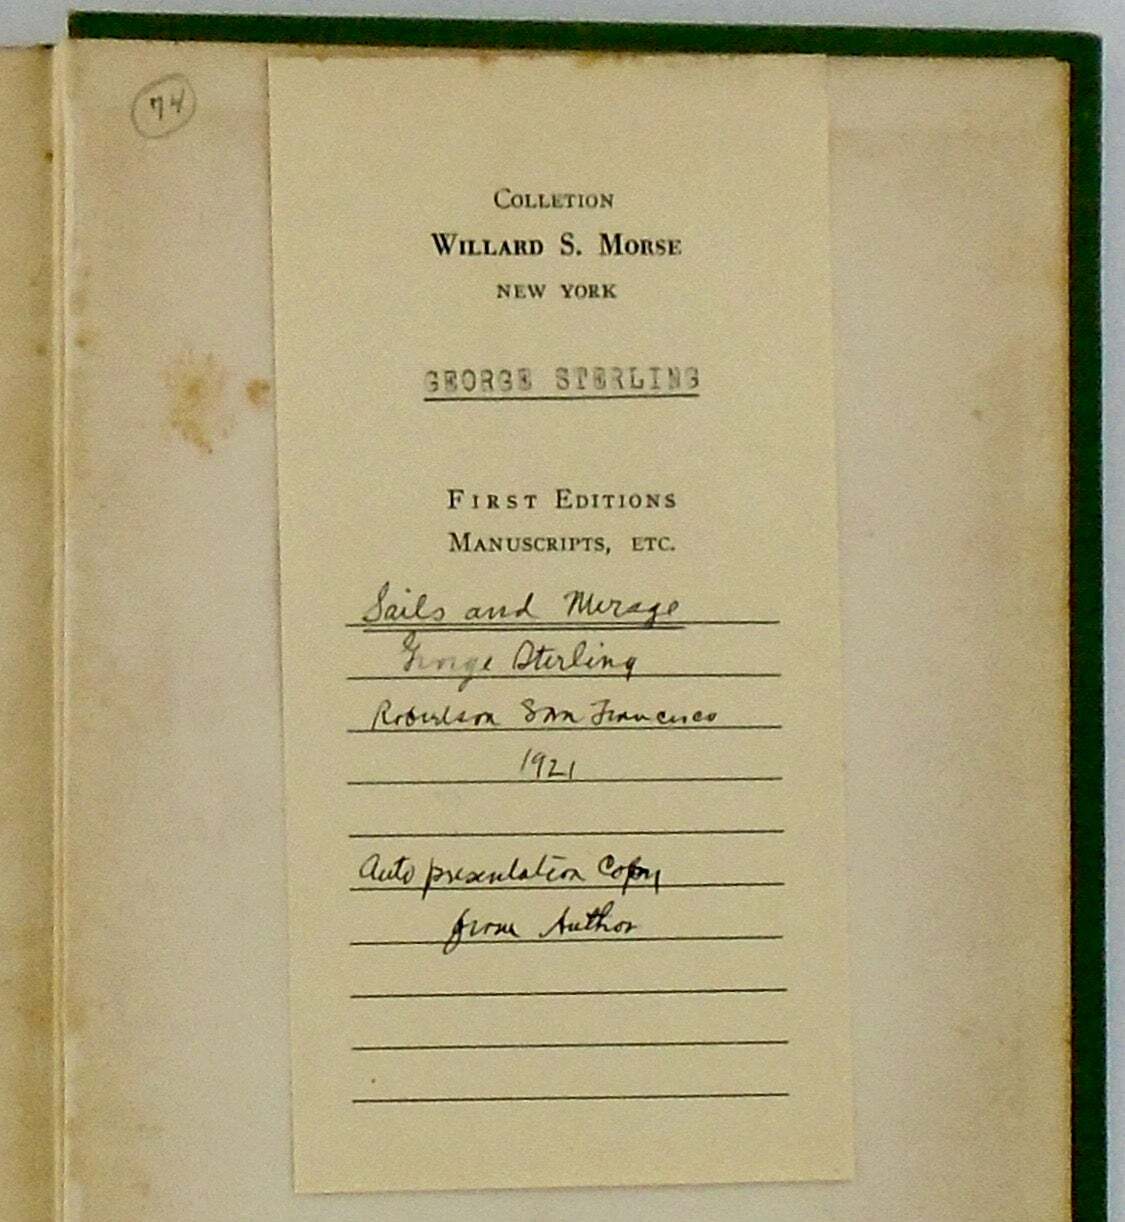 74
COLLETION
WILLARD S. MORSE
NEW YORK
GEORGE STERLING
FIRST EDITIONS
MANUSCRIPTS, ETC.
Sails and Mirage
George Sterling
Robertson San Francisco
1921
Auto presentation Copy
from Author